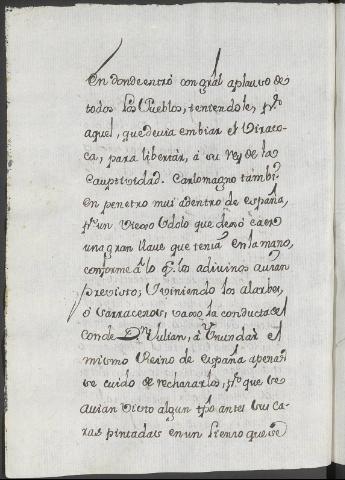 En donde entró con gral aplauso de
todos los Pueblos, teniendole, pr.
aquel, que devia embiar el Viraco-
ca, para libertar, á su rey de la
Cauptividad. Carlomagno tambi-
en penetro mui adentro de españa,
pr un Viexo Ydolo que dexó caer
una gran llave que tenia en la mano,
conforme á lo q.e los adivinos avian
previsto, Y viniendo los alarbes,
ó sarracenos, vaxo la conducta del
Conde D.n Julian, á Ynundar el
mismo Reino de españa apenas
se cuido de rechazarlos, pr que se
avian visto algun tpo antes sus ca-
ras pintadas en un lienzo que se